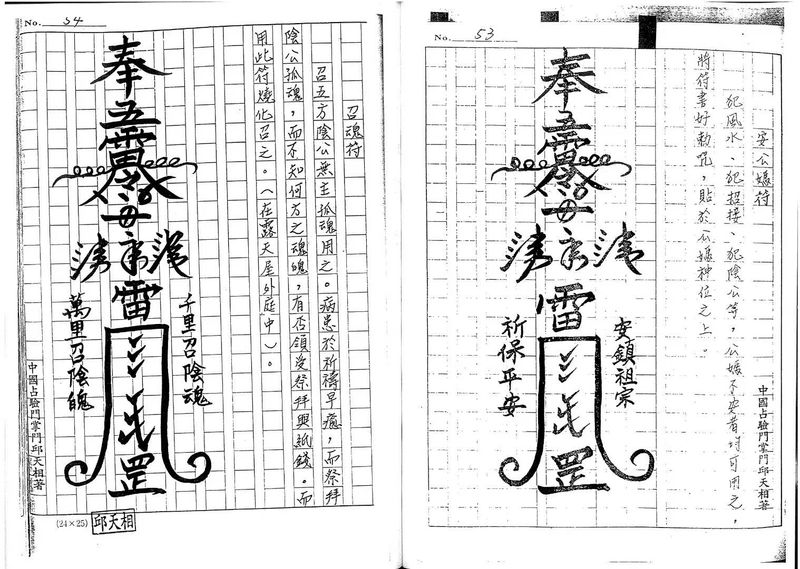 No. 53
安公媽符
犯風水、犯招接、犯陰公等,公媽不安者均可用之,
將符書好敕咒,貼於公媽神位之上。
奉
雷
罡
安鎮祖宗
祈保平安
中國占驗門掌門邱天相著
No. 54
召魂符
召五方陰公無主孤魂用之。病患於祈禱早癒,而祭拜
陰公孤魂,而不知何方之魂魄,有否領受祭拜與紙錢。而
用此符燒化召之。(在露天屋外庭中)。
奉
雷
罡
千里召陰魂
萬里召陰魄
中國占驗門掌門邱天相著
(24×25)
邱天相